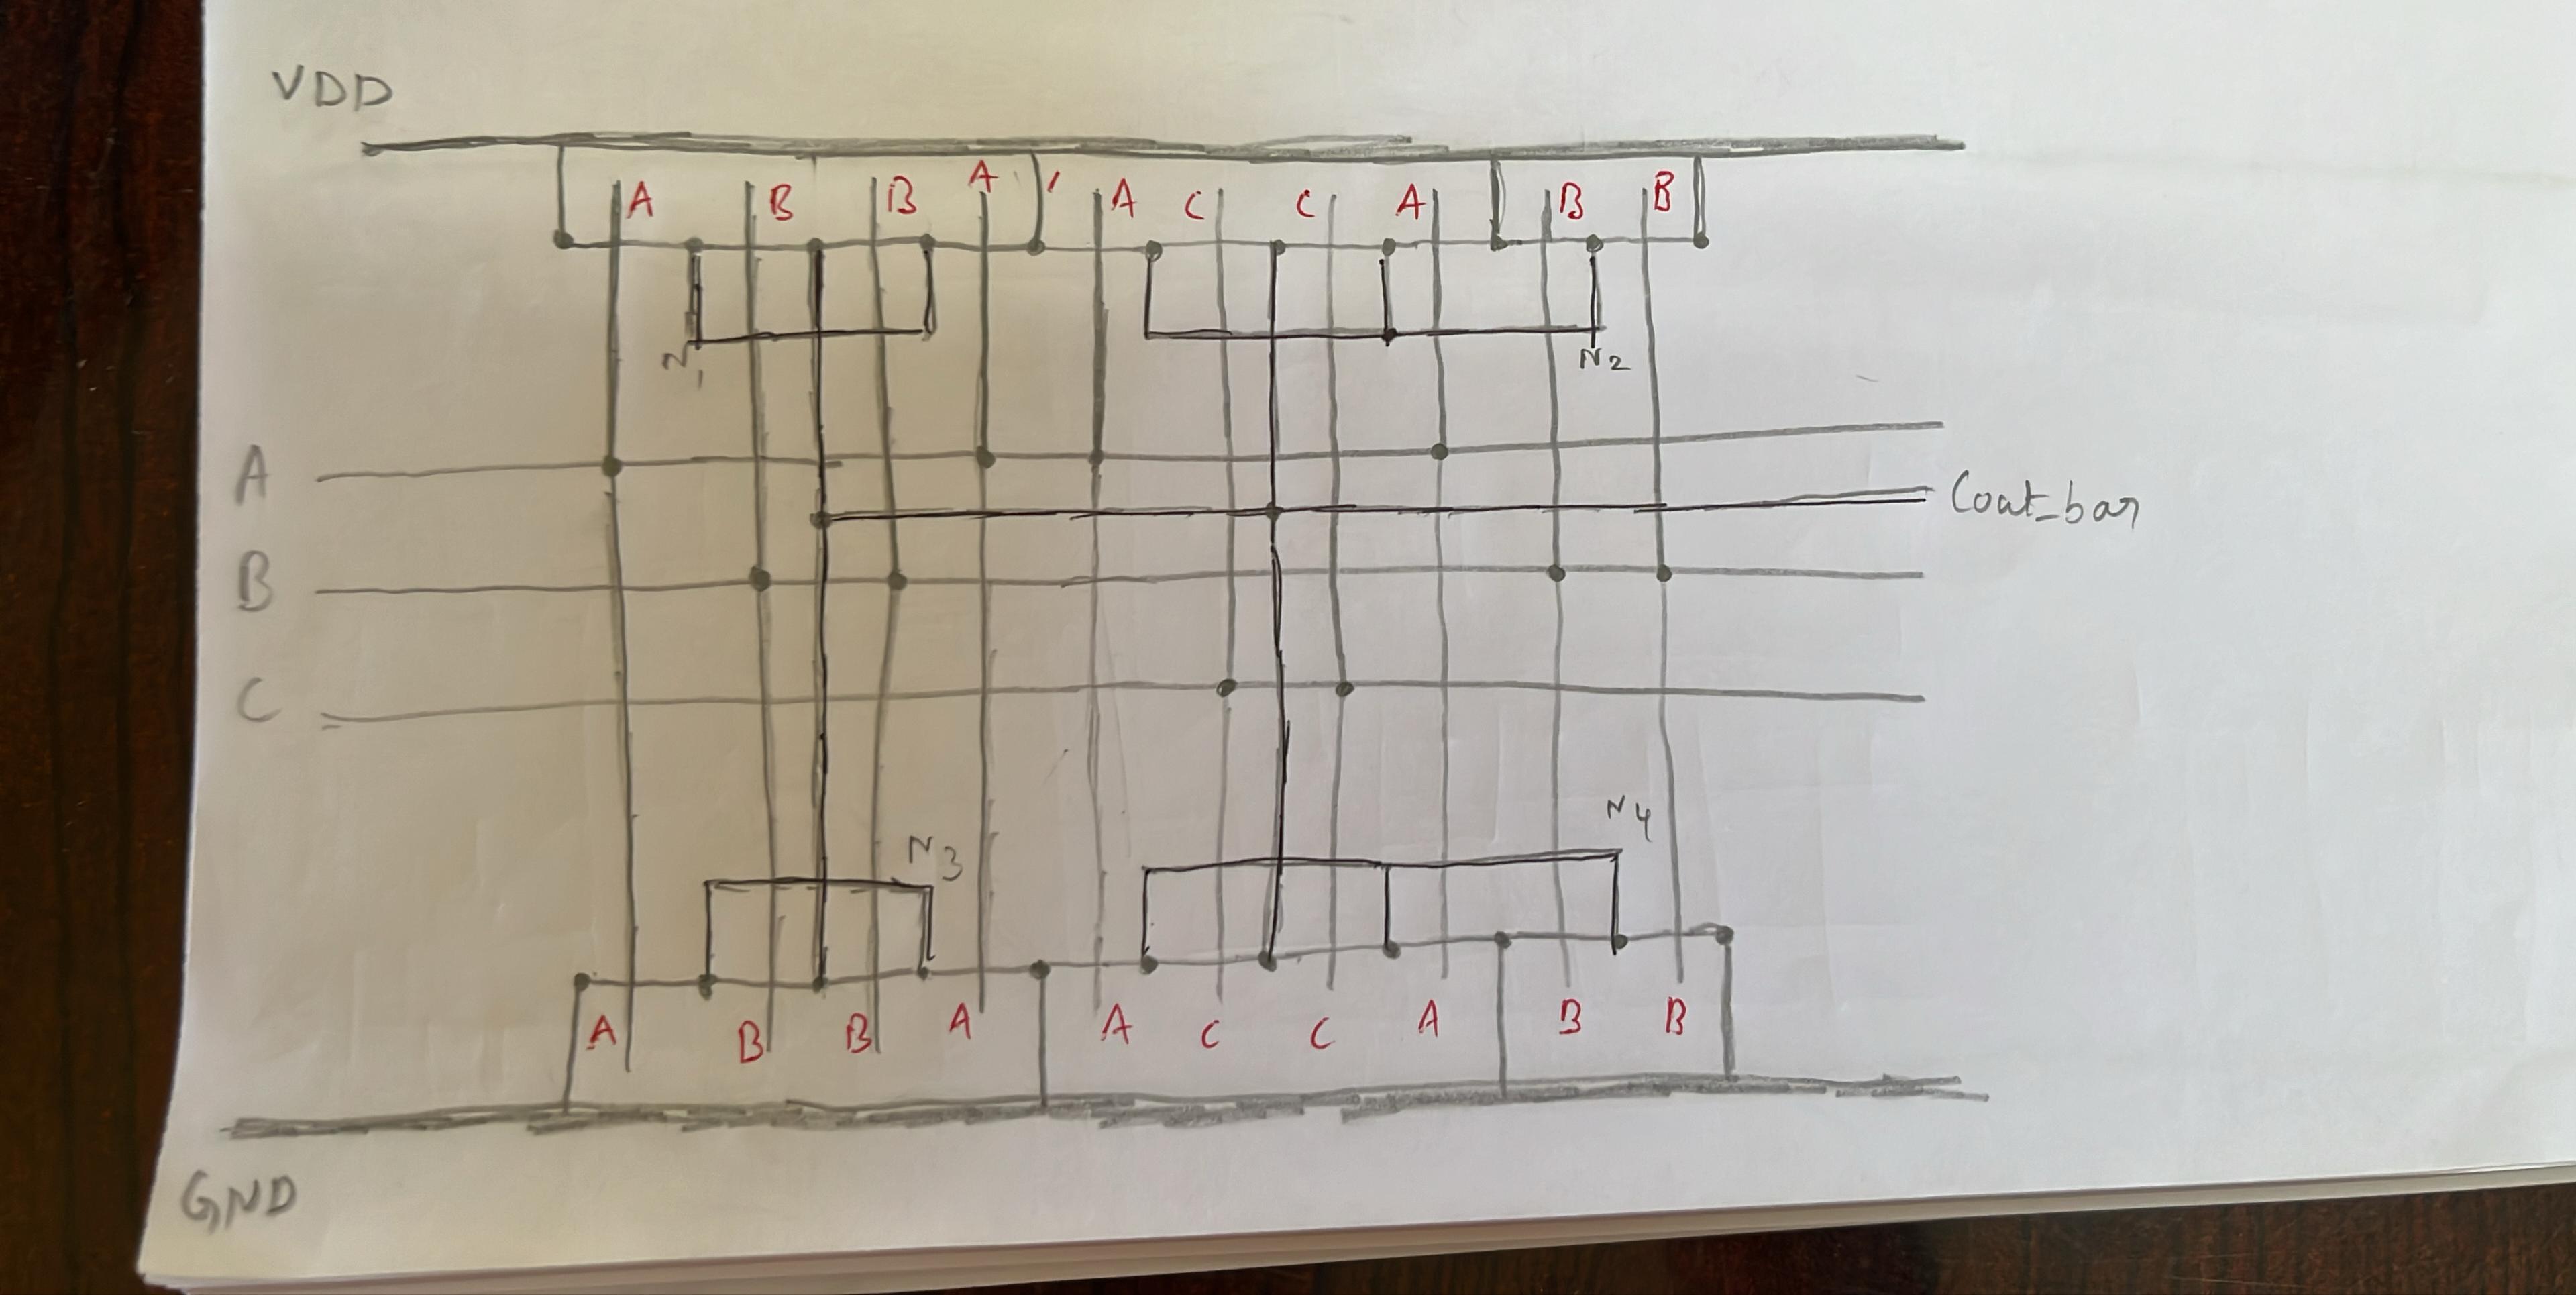 VDD
A B B A A C C A B B
N1 N2
A
Cout_bar
B
C
N4
N3
A B B A A C C A B B
GND